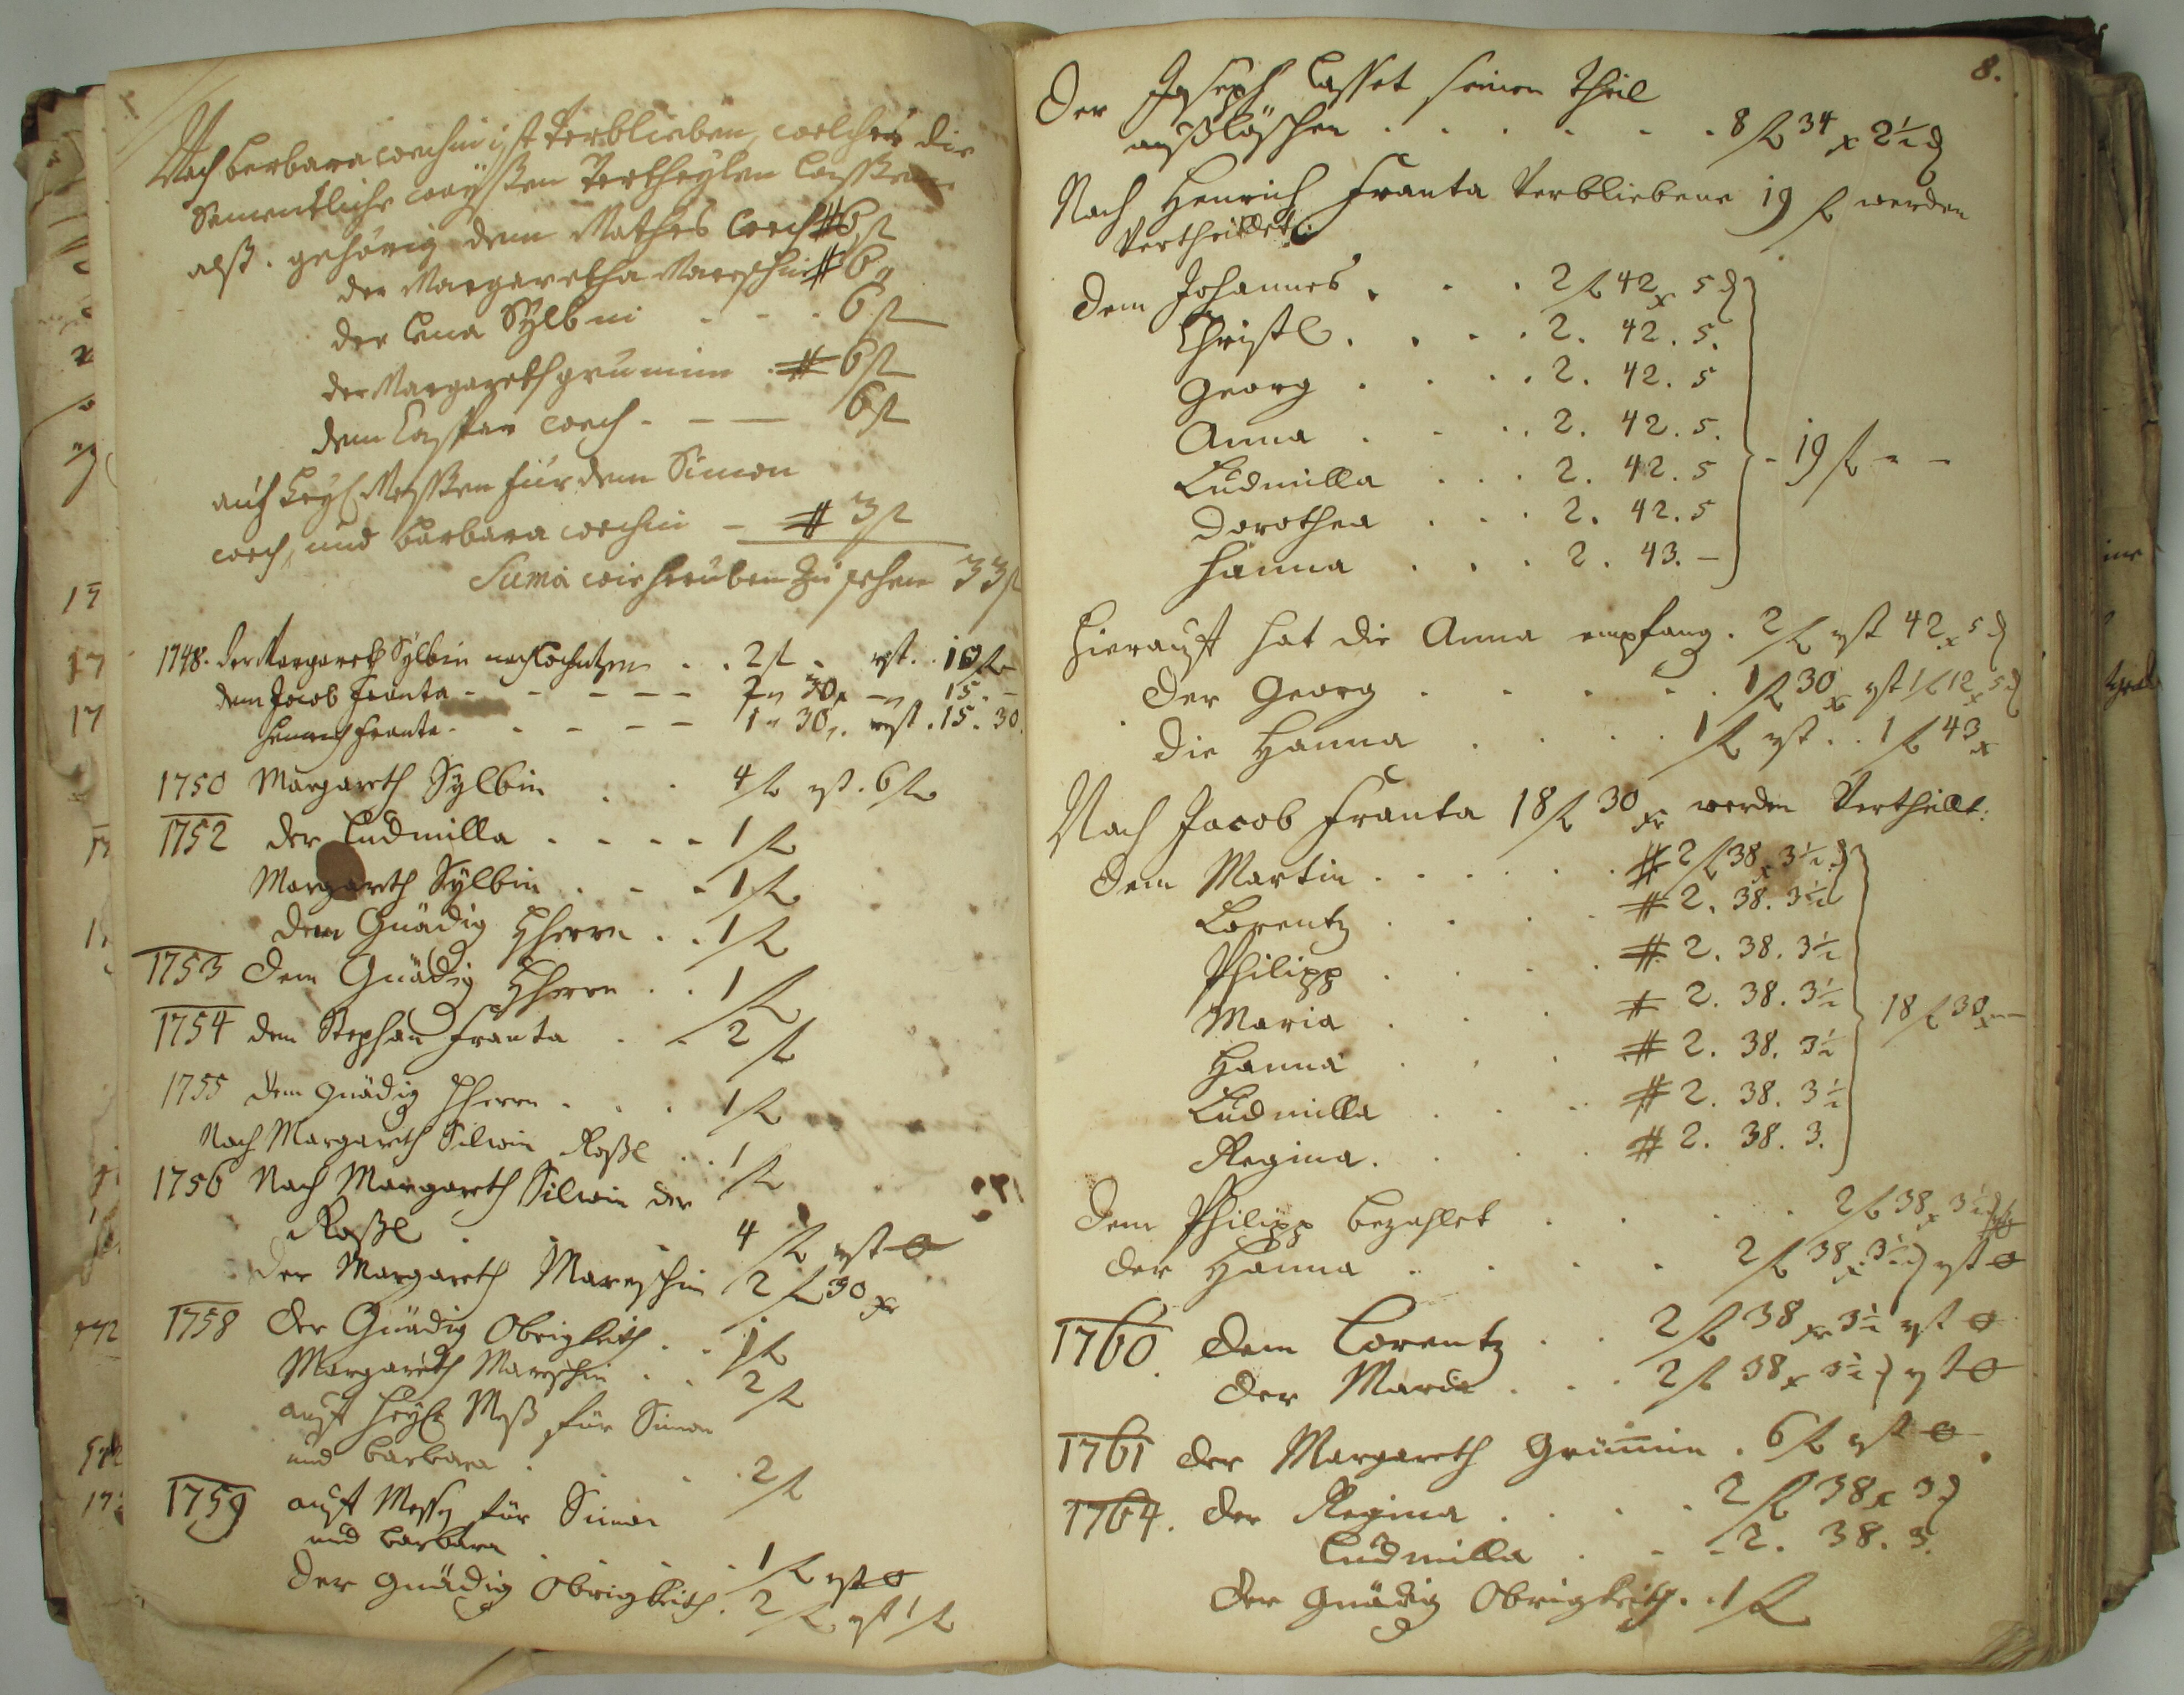 Nach berbara wechin ist verblieben, welches die
Sementliche waysßen vertheylen lassen
alß. gehörig dem Mathes Wech # 6 fl
der Margaretha Mareschin # 6 fl
der Lena Sylbin - - . 6 fl
der Margareth grumin . # 6 fl
dem Caspar wech - - — 6 fl
auf heyl Messen für dem Simon
wech, und barbara wechin - # 3 fl
Suma wie heruben zu sehen 33 fl
1748. der Margareth Sylbin nach . . 2 fl . rst . 10 fl
dem Jacob Franta - - - - - 30 x - 15. -
Henrich Franta - - - - - 1 " 30 . rst . 15. 30.
1750 Margareth Sylbin . . 4 fl rst . 6 fl
1752 der Ludmilla . - - - 1 fl
Margareth Sylbin . - - 1 fl
dem Gnädig Hherrn . . 1 fl
1753 dem Gnädig Hherrn . . 1 fl
1754 dem Stephan Franta . - 2 fl
1755 dem gnädig Hherrn . . . 1 fl
Nach Margareth Silwin Roßl . . 1 fl
1756 Nach Margareth Silwin der
Roßl . . . 4 fl rst 0
der Margareth Mareschin 2 fl 30 xr
1758 der Gnädig Obrigkeith . . 1 fl
Margareth Mareschin . . 2 fl
auf heyl Meß für Simon
und barbara . . . 2 fl
1759 auf Messen für Simon
und barbara . . . 1 fl rst 0
der gnädig Obrigkeith . 2 fl rst 1 fl
8.
der Joseph lasset seinen theil
außlöschen . . . . . . 8 fl 34 x 2 1/2 d
Nach Henrich Franta verbliebene 19 fl werden
vertheildet:
dem Johannes . . . 2 fl 42 x 5 d
Christl . . . . 2. 42. 5.
Georg . . . . 2. 42. 5
Anna . . . . 2. 42. 5.
Ludmilla . . . 2. 42. 5 - 19 fl - -
Dorothea . . . 2. 42. 5
Hanna . . . 2. 43. -
Hierauf hat die Anna empfang. 2 fl rst 42 x 5 d
der Georg . . . . . 1 fl 30 x rst 1 fl 12 x 5 d
die Hanna . . . . 1 fl rst . . 1 fl 43 x
Nach Jacob Franta 18 fl 30 xr werden vertheilt:
dem Martin . . . . . # 2 fl 38 x 3 1/2 d
Lorentz . . . . # 2. 38. 3 1/2
Philipp . . . . # 2. 38. 3 1/2
Maria . . . # 2. 38. 3 1/2 18 fl 30 x - -
Hanna . . . # 2. 38. 3 1/2
Ludmilla . . . # 2. 38. 3 1/2
Regina . . . . # 2. 38. 3.
dem Philipp bezahlet . . . . 2 fl 38 x 3 1/2
der Hanna . . . . 2 fl 38 x 3 1/2 d rst 0
1760 dem Lorentz . . 2 fl 38 xr 3 1/2 rst 0
der Maria . . . 2 fl 38 x 3 1/2 d rst 0
1761 der Margareth Grumin . 6 fl rst 0
1764. der Regina . . . . 2 fl 38 x 3 d
Ludmilla . - - 2. 38. 3.
der gnädig Obrigkeith . . 1 fl